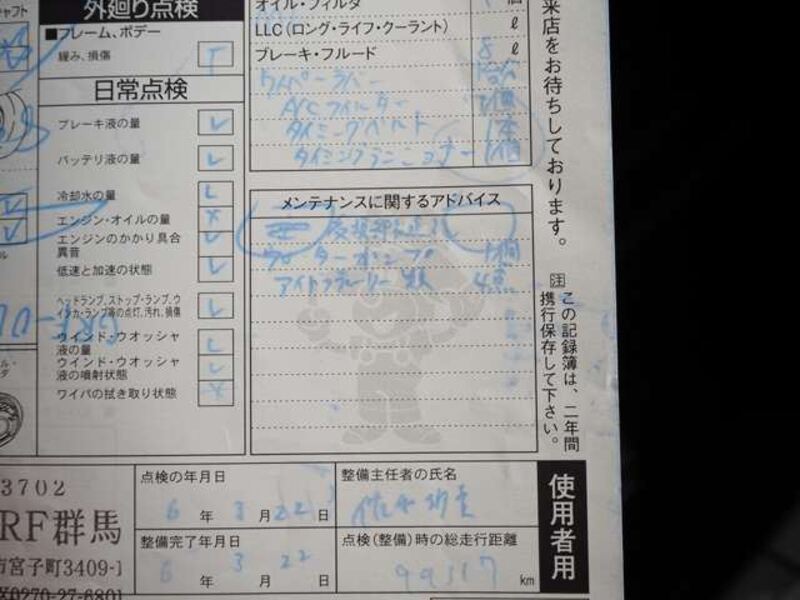 外廻り点検
■フレーム、ボデー
緩み、損傷
T
日常点検
ブレーキ液の量 レ
バッテリ液の量 レ
冷却水の量 L
エンジン・オイルの量 X
エンジンのかかり具合 異音 レ
低速と加速の状態 レ
ヘッドランプ、ストップ・ランプ、ウ
インカ・ランプ等の点灯、汚れ、損傷 レ
ウインド・ウオッシャ
液の量 L
ウインド・ウオッシャ
液の噴射状態 レ
ワイパの拭き取り状態
オイル・フィルタ 個
LLC(ロング・ライフ・クーラント) ℓ
ブレーキ・フルード ℓ
ワイパーラバー
A/Cフィルター
タイミングベルト 1本
タイミングテンショナー 1個
メンテナンスに関するアドバイス
ウォーターポンプ 1個
4点
来店をお待ちしております。
注 この記録簿は、二年間
携行保存して下さい。
3702
RF群馬
市宮子町3409-1
0270-27-6801
点検の年月日
6年3月22日
整備完了年月日
6年3月22日
整備主任者の氏名
点検(整備)時の総走行距離
99317 km
使用者用